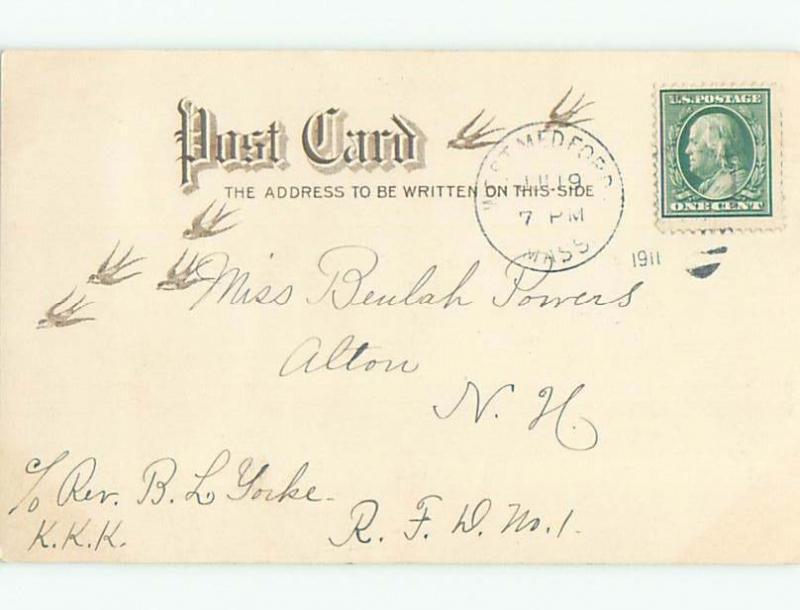 Post Card
THE ADDRESS TO BE WRITTEN ON THIS-SIDE
U.S. POSTAGE
ONE CENT
WEST MEDFORD
19
7 PM
MASS.
1911
Miss Beulah Powers
Alton
N. H.
c/o Rev. B. L. Yorke.
K.K.K.
R. F. D. No. 1.